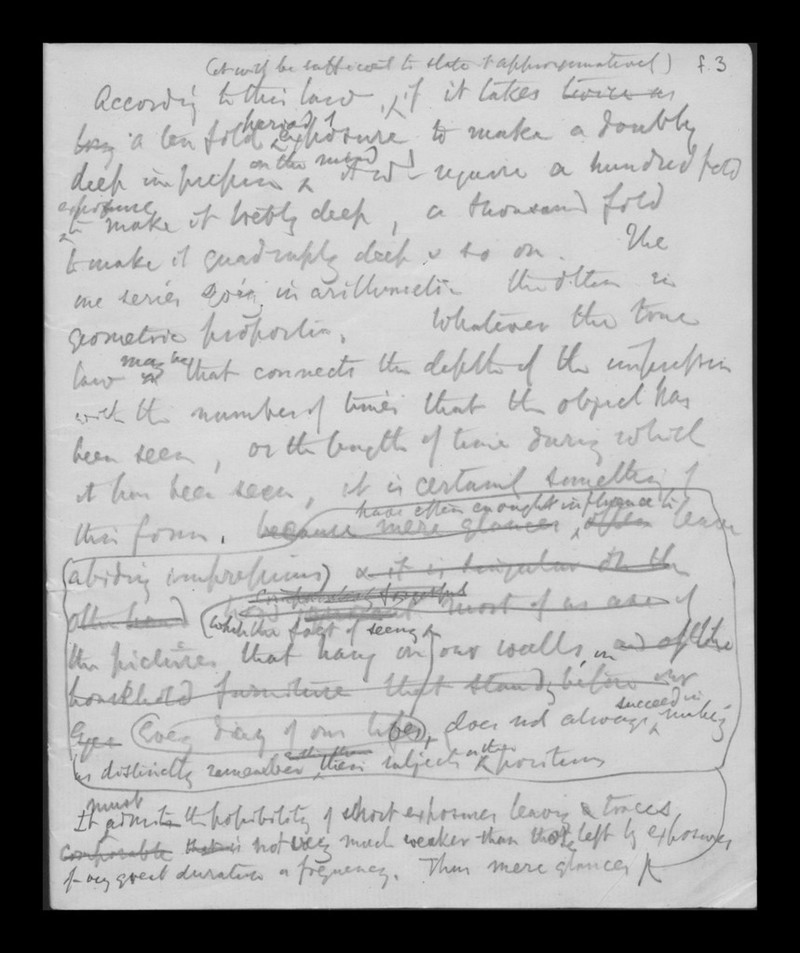 (it will be sufficient to state it approximatively) f. 3
According to this law, if it takes twice as
long a ten fold period of exposure to make a doubly
deep impression on the mind it wd require a hundred fold
exposure to make it trebly deep, a thousand fold
to make it quadruply deep & so on. The
one series goes in arithmetic the other in
geometric proportion. Whatever the true
law is may be that connects the depth of the impression
with the number of times that the object has
been seen, or the length of time during which
it has been seen, it is certainly something of
this form. because mere glances, often leave
have often enough influence to
abiding impressions) & it is singular on the
other hand how ignorant most of us are of
completely forgetful
(while the fact of seeing
the pictures that hang on our walls, and of the
household furniture that stands before our
Eyes every day of our lives, does not always succeed in making
us distinctly remember their subjects & positions
It must admit the possibility of short exposures leaving traces
comparable that is not very much weaker than those left by exposures
of very great duration or frequency. Thus mere glances